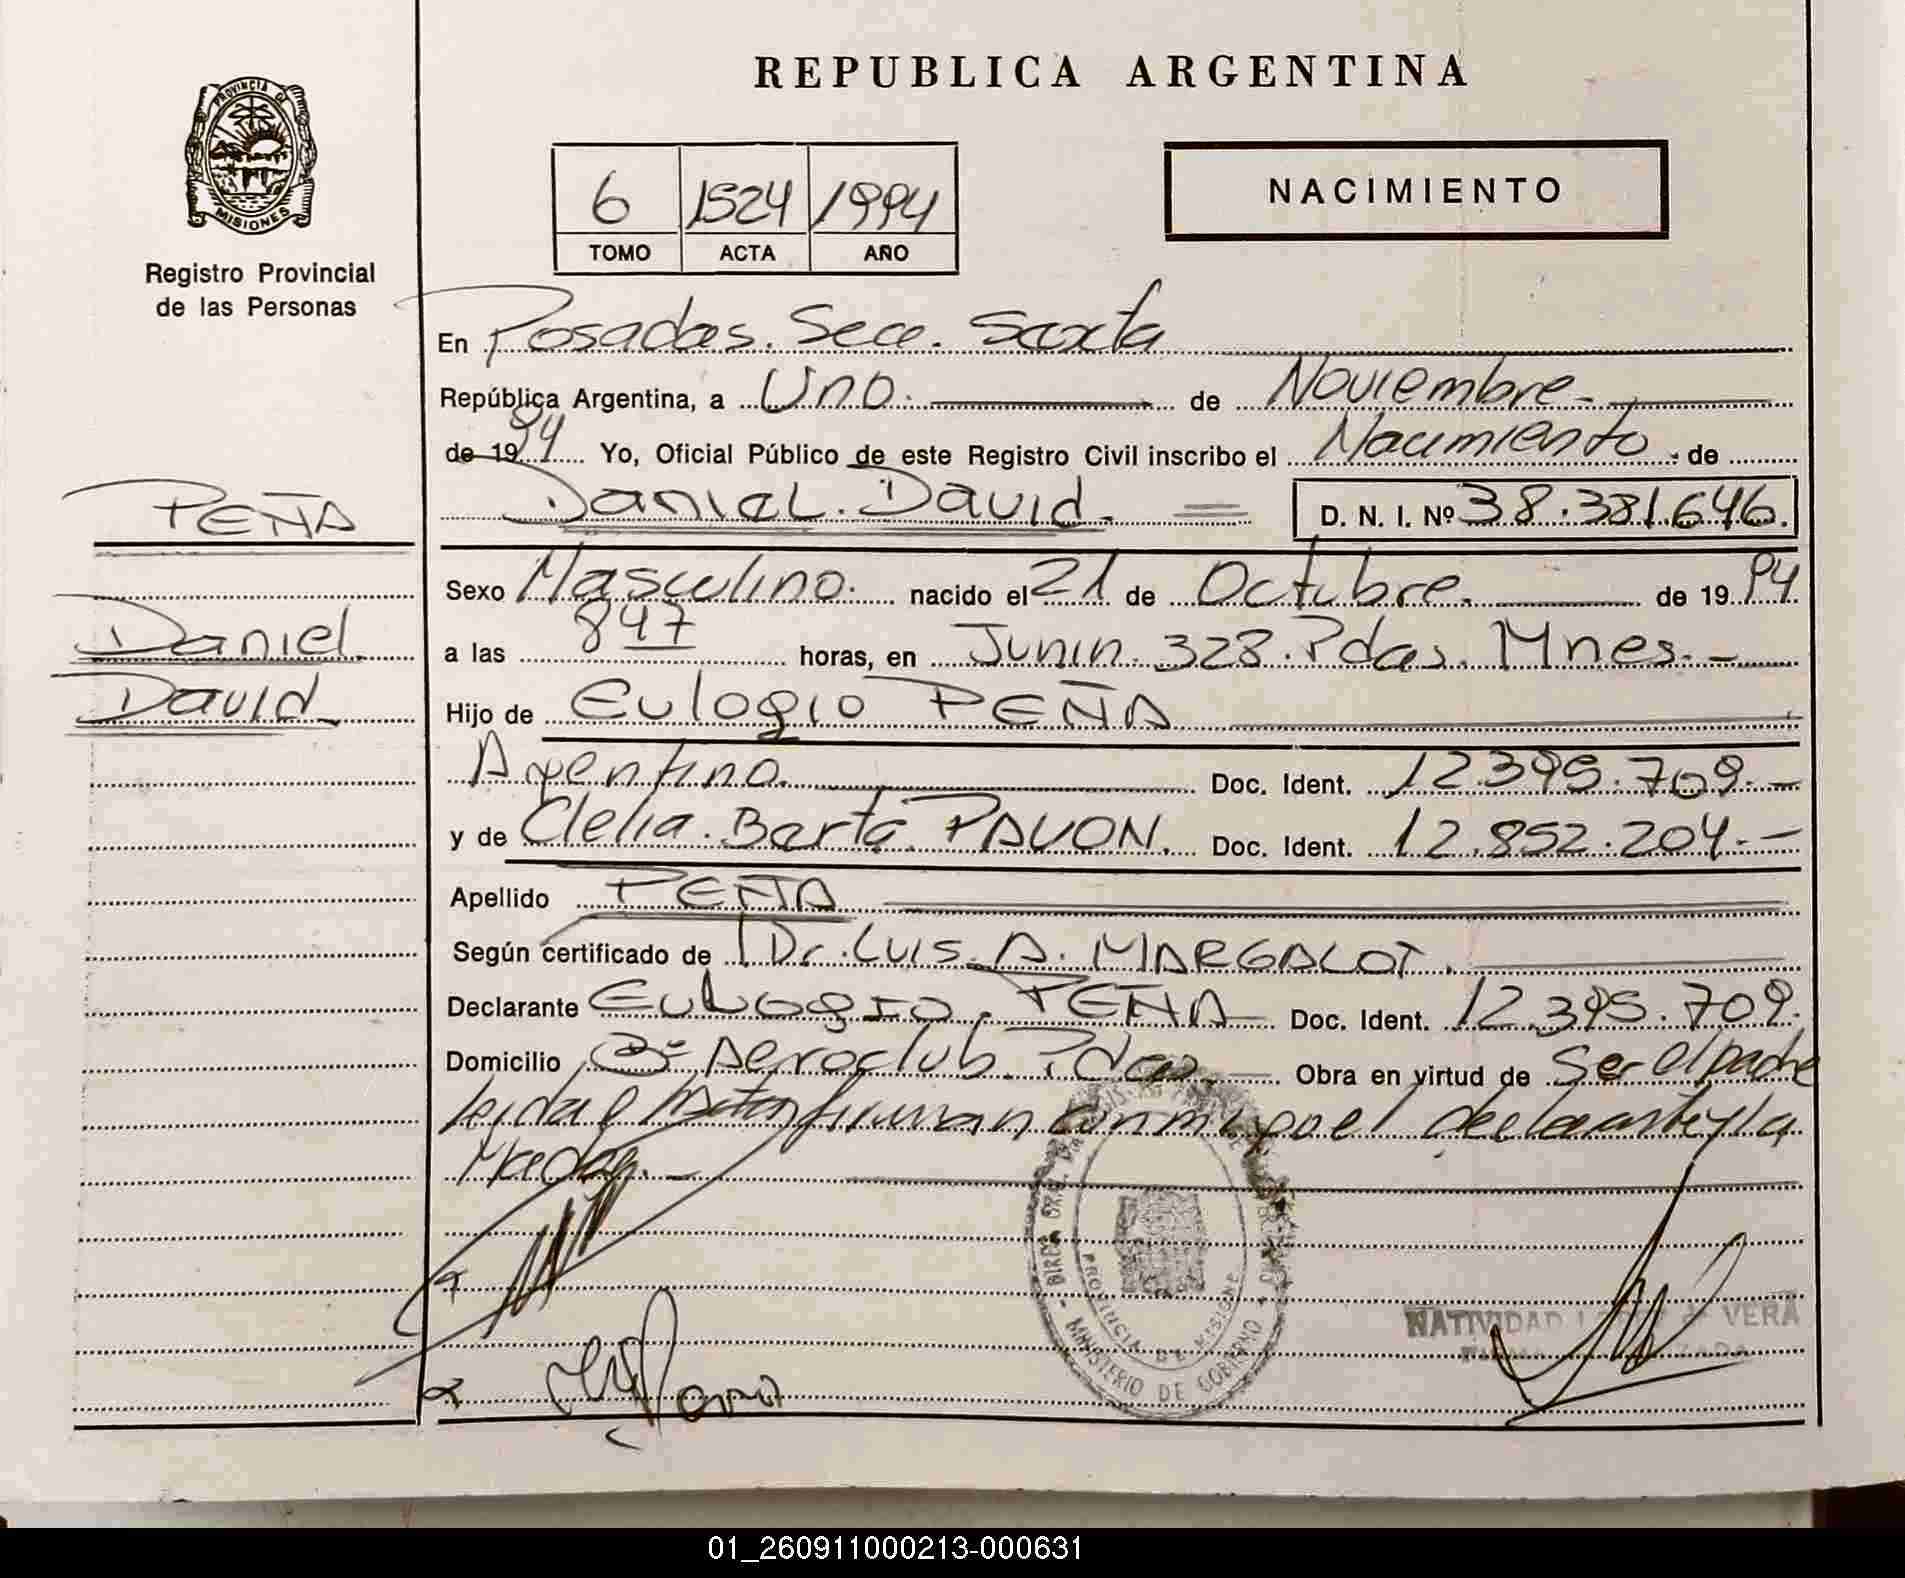 REPUBLICA ARGENTINA
PROVINCIA DE
MISIONES
Registro Provincial
de las Personas
6 1524 1994
TOMO ACTA AÑO
NACIMIENTO
En Posadas. Secc. Sexta
República Argentina, a Uno. de Noviembre
de 1994 Yo, Oficial Público de este Registro Civil inscribo el Nacimiento de
Daniel. David. D. N. I. Nº 38.381.646.
PEÑA
Daniel
David
Sexo Masculino. nacido el 21 de Octubre. de 1994
a las 847 horas, en Junin. 328. Pdas. Mnes.-
Hijo de Eulogio PEÑA
Argentino. Doc. Ident. 12.395.709.-
y de Clelia. Berta PAVON. Doc. Ident. 12.852.204.-
Apellido PEÑA
Según certificado de Dr. LUIS. A. MARGALOT.
Declarante EULOGIO. PEÑA Doc. Ident. 12.395.709.
Domicilio Bº Aeroclub. Pdas Obra en virtud de Ser el padre
leida el firman conmigo el declarante y la
Madre.-
PROVINCIA DE MISIONES
MINISTERIO DE GOBIERNO
NATIVIDAD de VERA
01_260911000213-000631